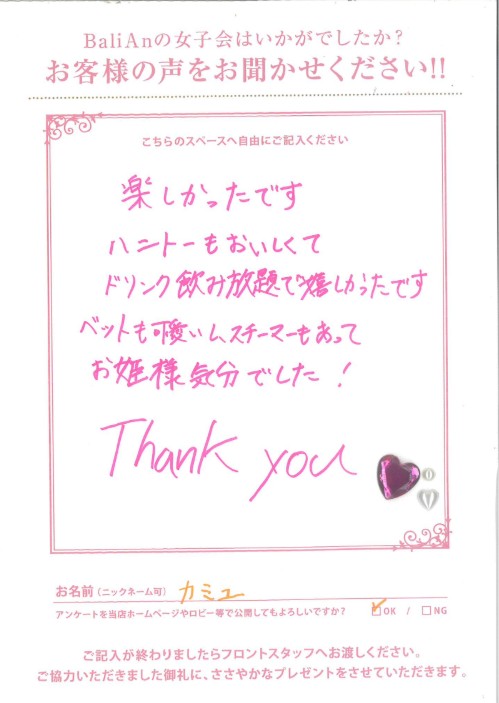 BaliAnの女子会はいかがでしたか?
お客様の声をお聞かせください!!
こちらのスペースへ自由にご記入ください
楽しかったです
ハニトーもおいしくて
ドリンク飲み放題で嬉しかったです
ベットも可愛いし、スチーマーもあって
お姫様気分でした!
Thank you
お名前(ニックネーム可) カミュ
アンケートを当店ホームページやロビー等で公開してもよろしいですか? ☑OK / □NG
ご記入が終わりましたらフロントスタッフへお渡しください。
ご協力いただきました御礼に、ささやかなプレゼントをさせていただきます。